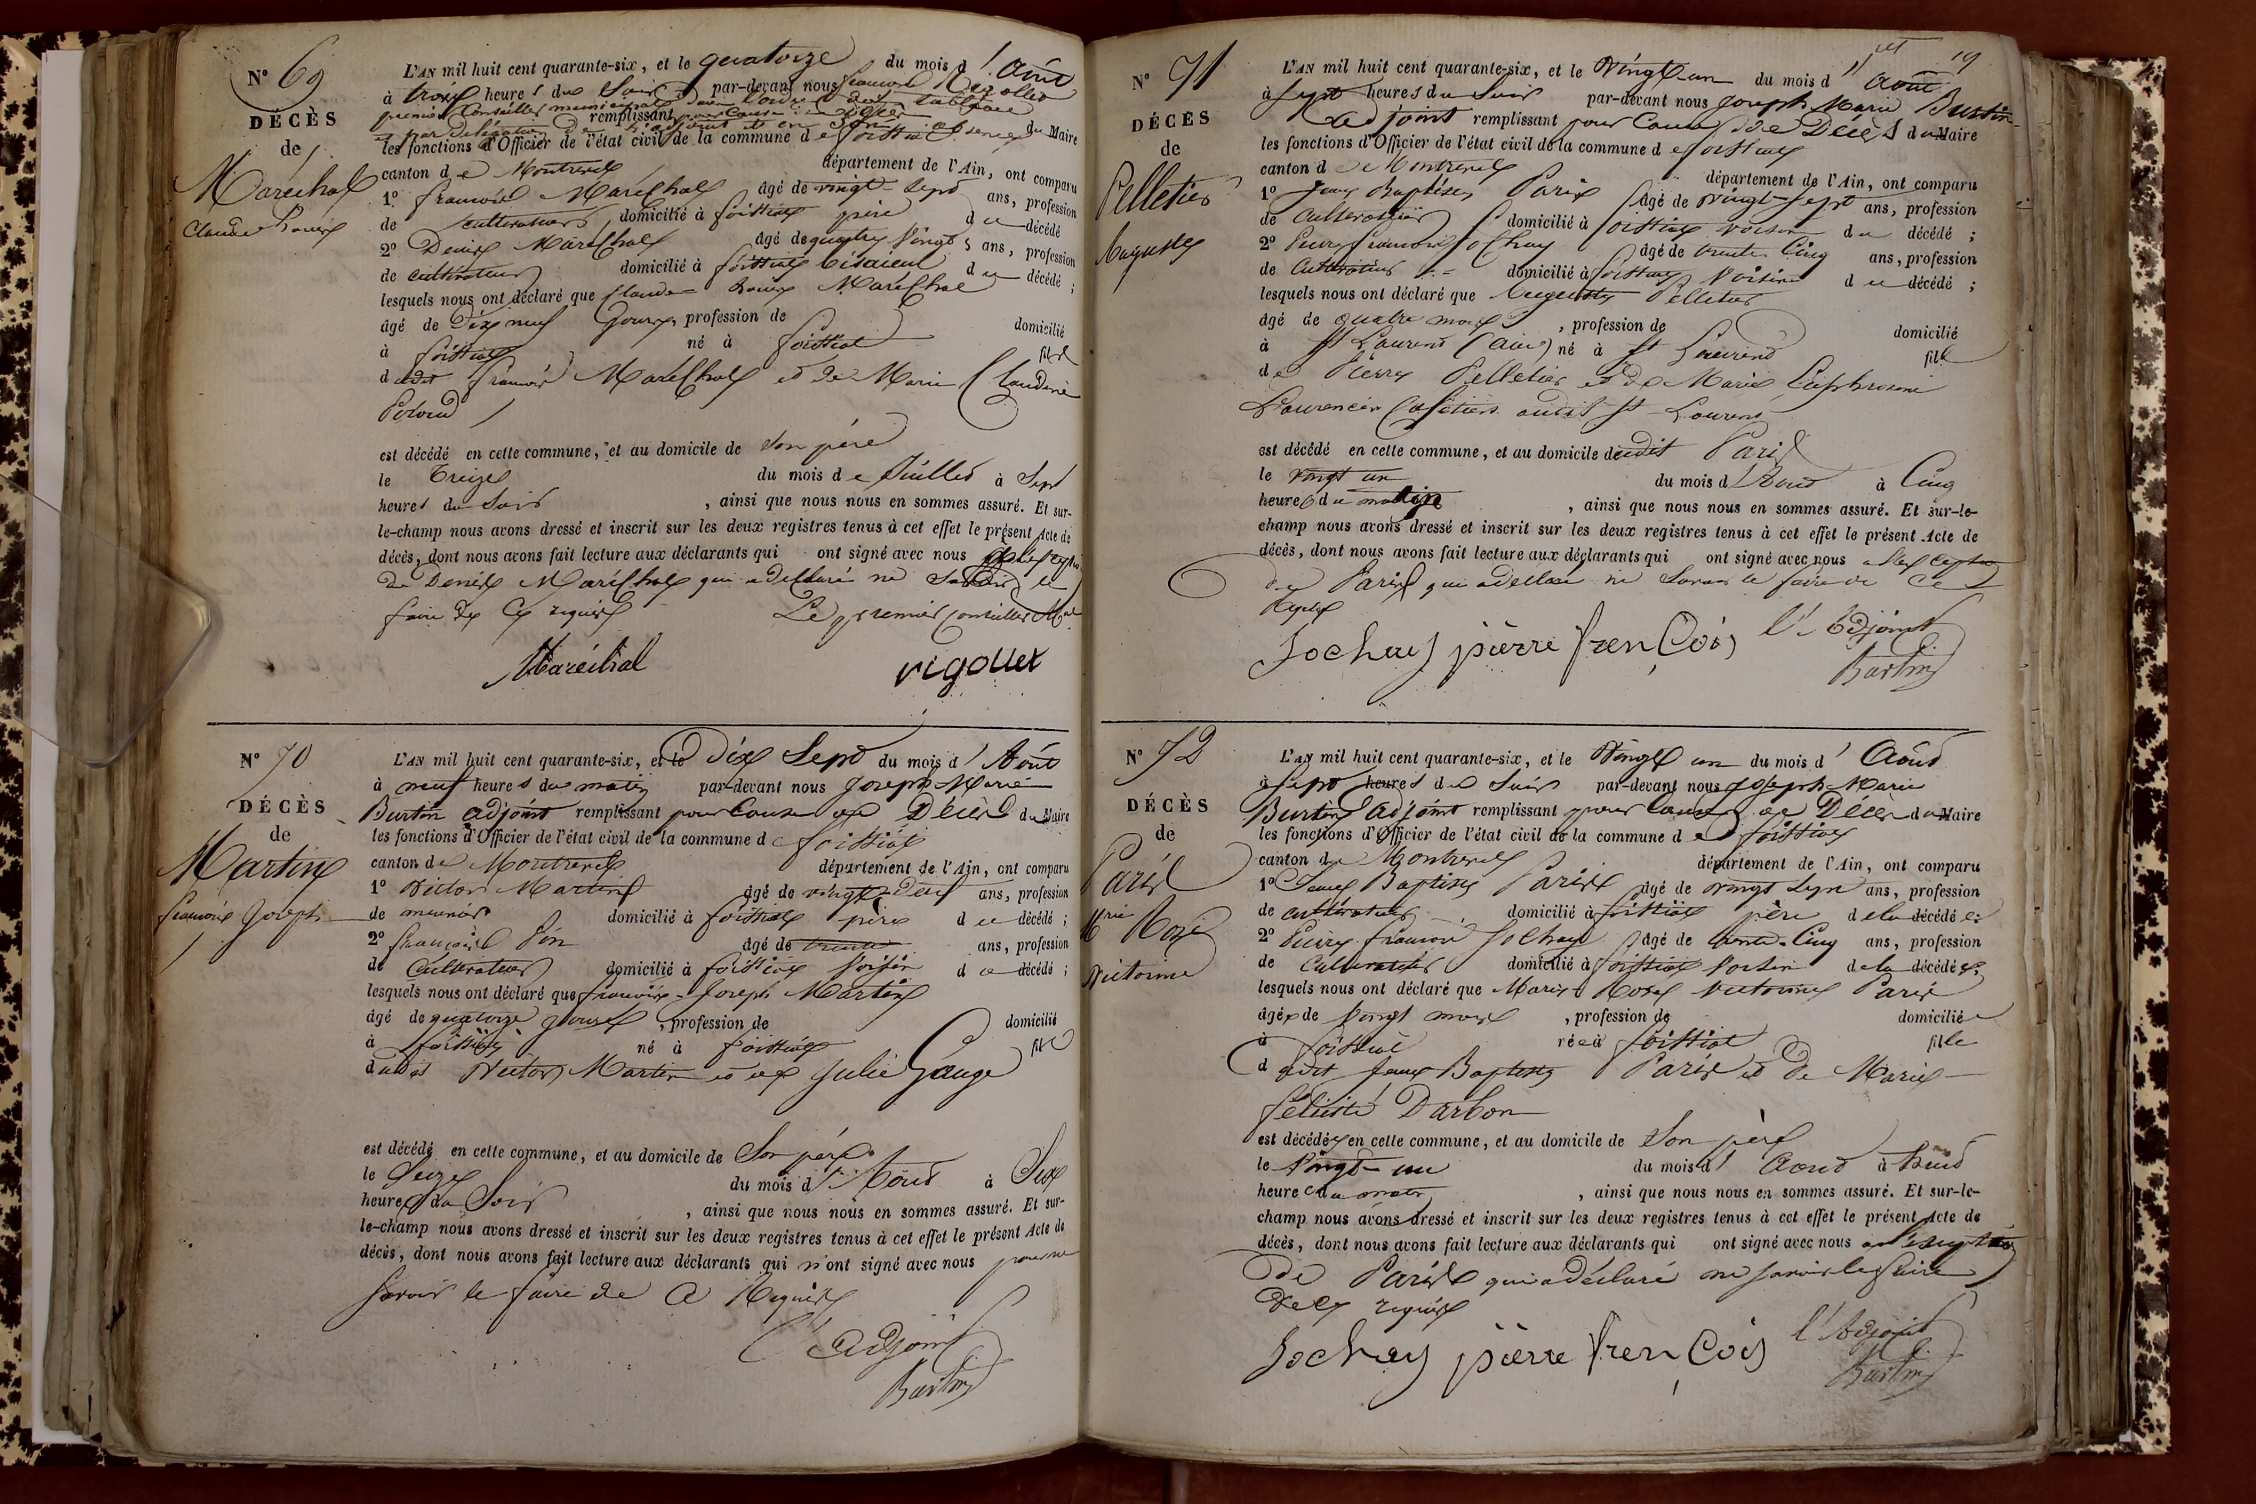 N° 69
DÉCÈS
de
Maréchal
Claude Louis
L'AN mil huit cent quarante-six, et le quatorze du mois d'Août
à trois heures du Soir par-devant nous François Rigollet
premier Conseiller municipal dans l'ordre du tableau
remplissant pour cause de
et par délégation de l'adjoint et en son absence du Maire
les fonctions d'Officier de l'état civil de la commune de foissiat
canton de Montrevel département de l'Ain, ont comparu
1° françois Maréchal âgé de vingt-sept ans, profession
de cultivateur domicilié à foissiat père du décédé
2° Denis Maréchal âgé de quatre vingts ans, profession
de cultivateur domicilié à foissiat bisaïeul du décédé ;
lesquels nous ont déclaré que Claude Louis Maréchal
âgé de Dix neuf jours, profession de domicilié
à foissiat né à foissiat fils
dudit françois Maréchal et de Marie Claudine
Poloud
est décédé en cette commune, et au domicile de son père
le treize du mois de Juillet à Sept
heures du Soir , ainsi que nous nous en sommes assuré. Et sur-
le-champ nous avons dressé et inscrit sur les deux registres tenus à cet effet le présent Acte de
décès, dont nous avons fait lecture aux déclarants qui ont signé avec nous
de Denis Maréchal qui a déclaré ne savoir le
faire de ce requis Le premier Conseiller Mal
Maréchal rigollet
N° 70
DÉCÈS
de
Martin
françois Joseph
L'AN mil huit cent quarante-six, et le Dix Sept du mois d'Août
à neuf heures du matin par-devant nous Joseph Marie
Burtin adjoint remplissant pour Cause de Décès du Maire
les fonctions d'Officier de l'état civil de la commune de foissiat
canton de Montrevel département de l'Ain, ont comparu
1° Victor Martin âgé de vingt-Deux ans, profession
de meunier domicilié à foissiat père du décédé ;
2° françois Pin âgé de trente ans, profession
de Cultivateur domicilié à foissiat Voisin du décédé ;
lesquels nous ont déclaré que françois-Joseph Martin
âgé de quatorze jours , profession de domicilié
à foissiat né à foissiat fils
dudit Victor Martin et de Julie Gauge
est décédé en cette commune, et au domicile de Son père
le Seize du mois d'Août à Six
heures du Soir , ainsi que nous nous en sommes assuré. Et sur-
le-champ nous avons dressé et inscrit sur les deux registres tenus à cet effet le présent Acte de
décès, dont nous avons fait lecture aux déclarants qui n'ont signé avec nous pour ne
savoir le faire de Ce Requis
L'adjoint
Burtin
19
N° 71
DÉCÈS
de
Pelletier
Auguste
L'AN mil huit cent quarante-six, et le Vingt un du mois d'Août
à Sept heures du Soir par-devant nous Joseph Marie Burtin
adjoint remplissant pour Cause de Décès du Maire
les fonctions d'Officier de l'état civil de la commune de foissiat
canton de Montrevel département de l'Ain, ont comparu
1° Jean Baptiste Paris âgé de vingt-Sept ans, profession
de Cultivateur domicilié à foissiat voisin du décédé ;
2° Pierre françois Jochay âgé de trente Cinq ans, profession
de Cultivateur domicilié à foissiat Voisin du décédé ;
lesquels nous ont déclaré que Auguste Pelletier
âgé de quatre mois , profession de domicilié
à St Laurent (ain) né à St Laurent fils
de Pierre Pelletier et de Marie Euphrosine
Laurencin Cafetiers audit St Laurent
est décédé en cette commune, et au domicile dudit Paris
le vingt un du mois d'Août à Cinq
heures du matin , ainsi que nous nous en sommes assuré. Et sur-le-
champ nous avons dressé et inscrit sur les deux registres tenus à cet effet le présent Acte de
décès, dont nous avons fait lecture aux déclarants qui ont signé avec nous
de Paris qui a déclaré ne Savoir le faire de Ce
Requis
Jochay pièrre frençois L'Adjoint
Burtin
N° 72
DÉCÈS
de
Paris
Mrie Rose
Victorine
L'AN mil huit cent quarante-six, et le Vingt un du mois d'Août
à Sept heures du Soir par-devant nous Joseph Marie
Burtin adjoint remplissant pour Cause de Décès du Maire
les fonctions d'Officier de l'état civil de la commune de foissiat
canton de Montrevel département de l'Ain, ont comparu
1° Jean Baptiste Paris âgé de vingt Sept ans, profession
de cultivateur domicilié à foissiat père de la décédée ;
2° Pierre françois Jochay âgé de trente-Cinq ans, profession
de Cultivateur domicilié à foissiat Voisin de la décédée ;
lesquels nous ont déclaré que Marie Rose Victorine Paris
âgée de Vingt mois , profession de domiciliée
à foissiat née à foissiat fille
dudit Jean Baptiste Paris et de Marie
félicité Darbon
est décédée en cette commune, et au domicile de Son père
le Vingt-un du mois d'Août à
heure du matin , ainsi que nous nous en sommes assuré. Et sur-le-
champ nous avons dressé et inscrit sur les deux registres tenus à cet effet le présent Acte de
décès, dont nous avons fait lecture aux déclarants qui ont signé avec nous
De Paris qui a déclaré ne savoir le faire
de ce requis
Jochay pièrre frençois l'Adjoint
Burtin